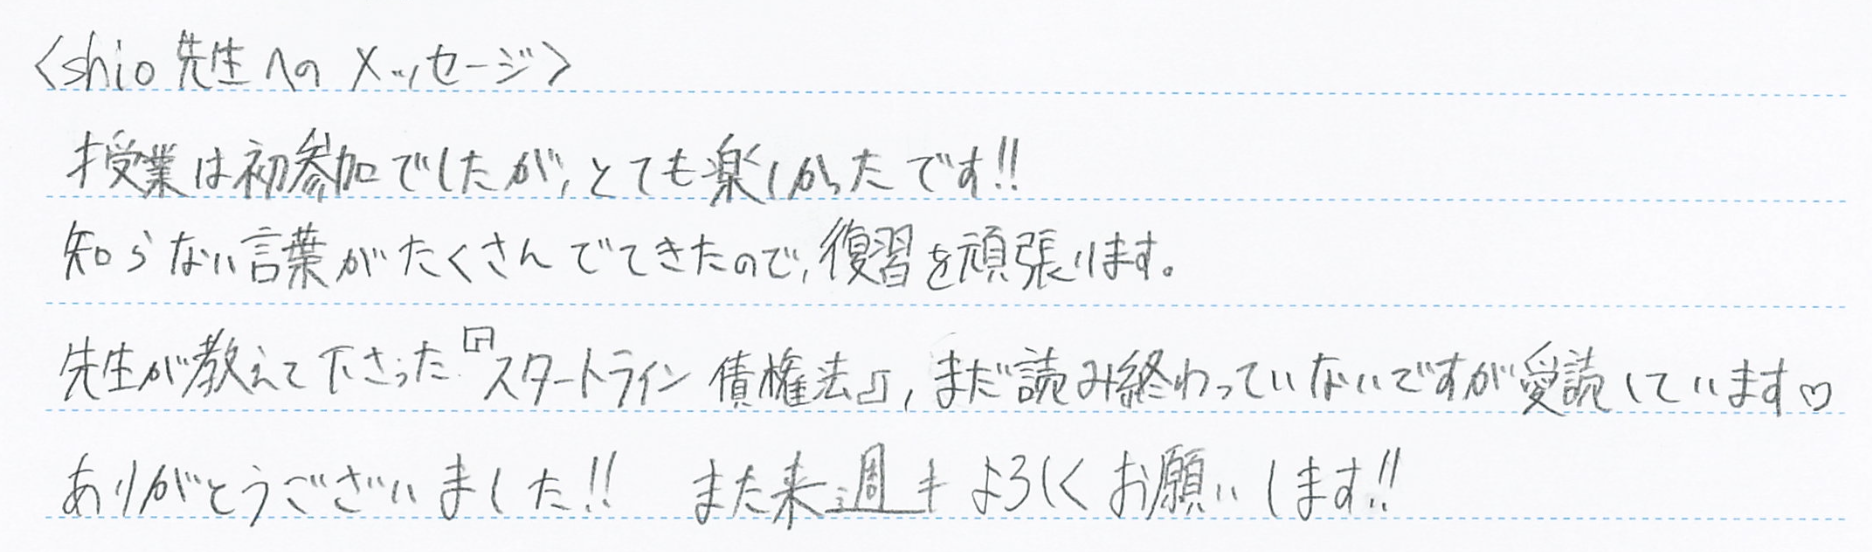 〈shio先生へのメッセージ〉
授業は初参加でしたが、とても楽しかったです!!
知らない言葉がたくさんでてきたので、復習を頑張ります。
先生が教えて下さった『スタートライン債権法』、まだ読み終わっていないですが愛読しています♡
ありがとうございました!! また来週もよろしくお願いします!!